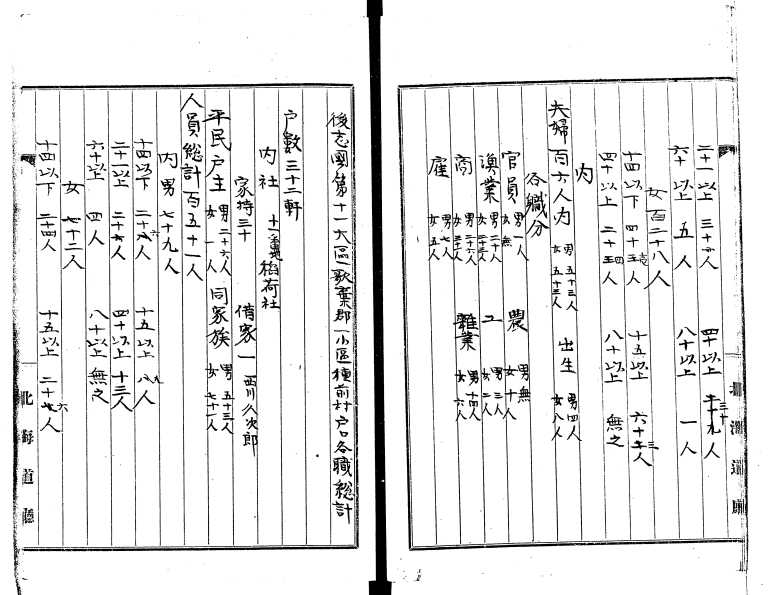 二十一以上 三十六人 四十以上 三十九人
六十以上 五人 八十以上 一人
女百二十八人
十四以下 四十五人 十五以上 六十三人
四十以上 二十四人 八十以上 無之
内
夫婦百六人内 男五十三人 女五十三人 出生 男四人 女八人
各職分
官員 男一人 女無 農 男無 女十人
漁業 男二十人 女二十三人 工 男三人 女二人
商 男二十六人 女三十人 雑業 男十四人 女六人
雇 男七人 女五人
北海道庁
後志國第十一大區歌棄郡一小區種前村戸口各職総計
戸数三十二軒
内社 稲荷社
家持三十 借家一 西川久次郎
平民戸主 男二十六人 女一人 同家族 男五十三人 女七十一人
人員総計百五十一人
内男七十九人
十四以下 二十六人 十五以上 九人
二十一以上 二十七人 四十以上 十三人
六十以上 四人 八十以上 無之
女七十二人
十四以下 二十四人 十五以上 二十六人
北海道廳